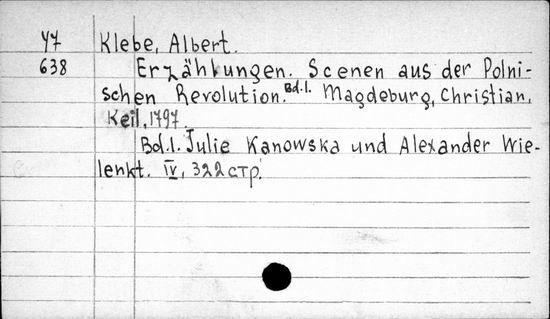 47 Klebe, Albert.
638 Erzählungen. Scenen aus der Polni-
schen Revolution. Bd.I. Magdeburg, Christian,
Keil, 1797.
Bd.I. Julie Kanowska und Alexander Wie-
lenkt. IV, 322 стр.